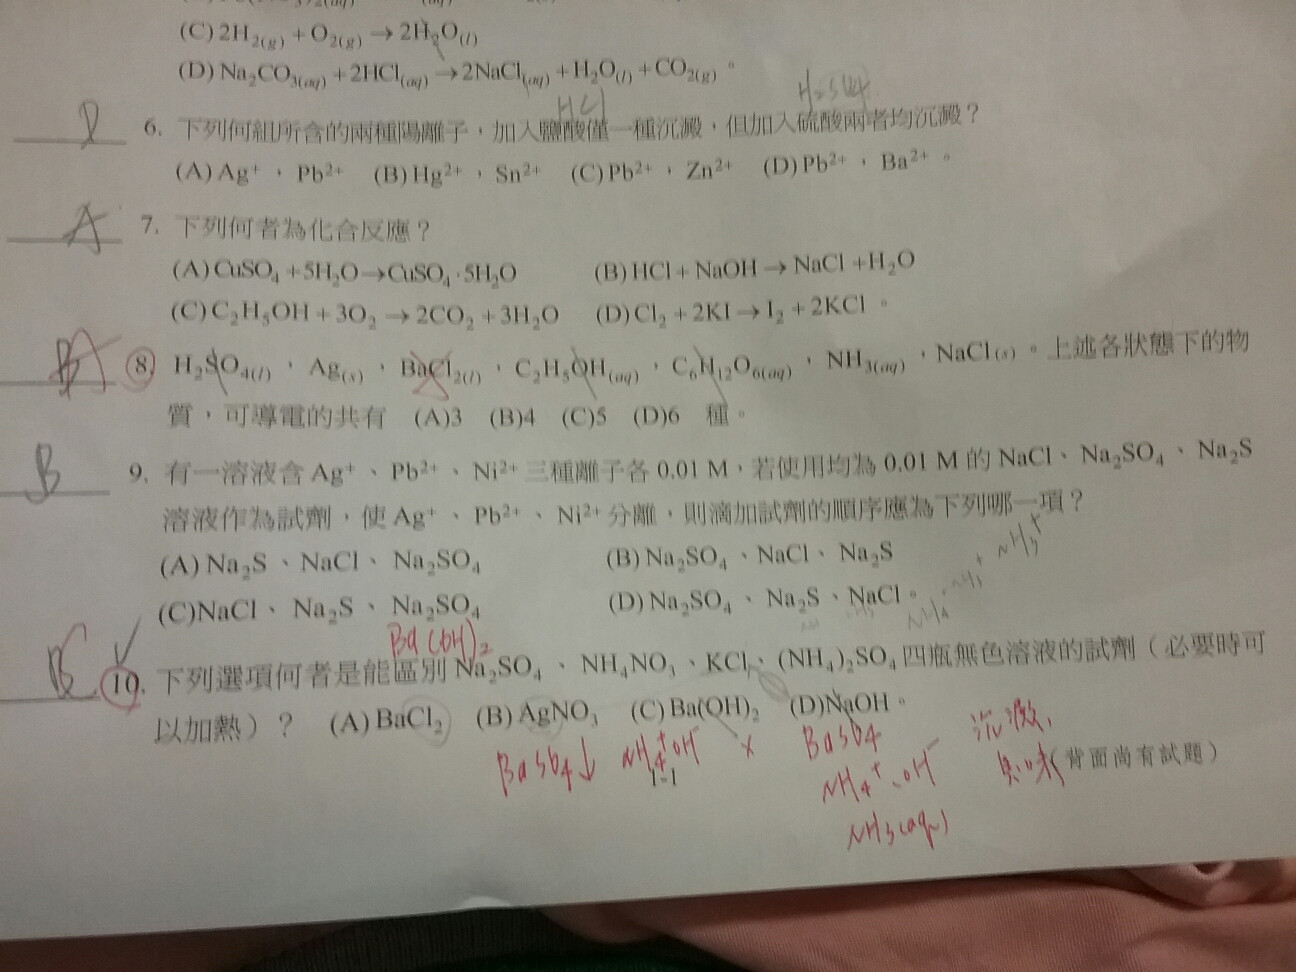 (C) 2H₂(g) + O₂(g) → 2H₂O(l)
(D) Na₂CO₃(aq) + 2HCl(aq) → 2NaCl(aq) + H₂O(l) + CO₂(g)。
HCl H₂SO4
D 6. 下列何組所含的兩種陽離子，加入鹽酸僅一種沉澱，但加入硫酸兩者均沉澱？
(A) Ag⁺，Pb²⁺ (B) Hg²⁺，Sn²⁺ (C) Pb²⁺，Zn²⁺ (D) Pb²⁺，Ba²⁺。
A 7. 下列何者為化合反應？
(A) CuSO₄ + 5H₂O → CuSO₄·5H₂O (B) HCl + NaOH → NaCl + H₂O
(C) C₂H₅OH + 3O₂ → 2CO₂ + 3H₂O (D) Cl₂ + 2KI → I₂ + 2KCl。
8. H₂SO₄(l)，Ag(s)，BaCl₂(l)，C₂H₅OH(aq)，C₆H₁₂O₆(aq)，NH₃(aq)，NaCl(s)。上述各狀態下的物
質，可導電的共有 (A)3 (B)4 (C)5 (D)6 種。
B 9. 有一溶液含 Ag⁺、Pb²⁺、Ni²⁺ 三種離子各 0.01 M，若使用均為 0.01 M 的 NaCl、Na₂SO₄、Na₂S
溶液作為試劑，使 Ag⁺、Pb²⁺、Ni²⁺ 分離，則滴加試劑的順序應為下列哪一項？
(A) Na₂S、NaCl、Na₂SO₄ (B) Na₂SO₄、NaCl、Na₂S
(C) NaCl、Na₂S、Na₂SO₄ (D) Na₂SO₄、Na₂S、NaCl。
Ba(OH)₂
10. 下列選項何者是能區別 Na₂SO₄、NH₄NO₃、KCl、(NH₄)₂SO₄ 四瓶無色溶液的試劑（必要時可
以加熱）？ (A) BaCl₂ (B) AgNO₃ (C) Ba(OH)₂ (D) NaOH。
BaSO4↓ NH₄⁺OH⁻ × BaSO4 沉澱、
1-1 NH₄⁺、OH⁻ (背面尚有試題)
NH₃(aq)